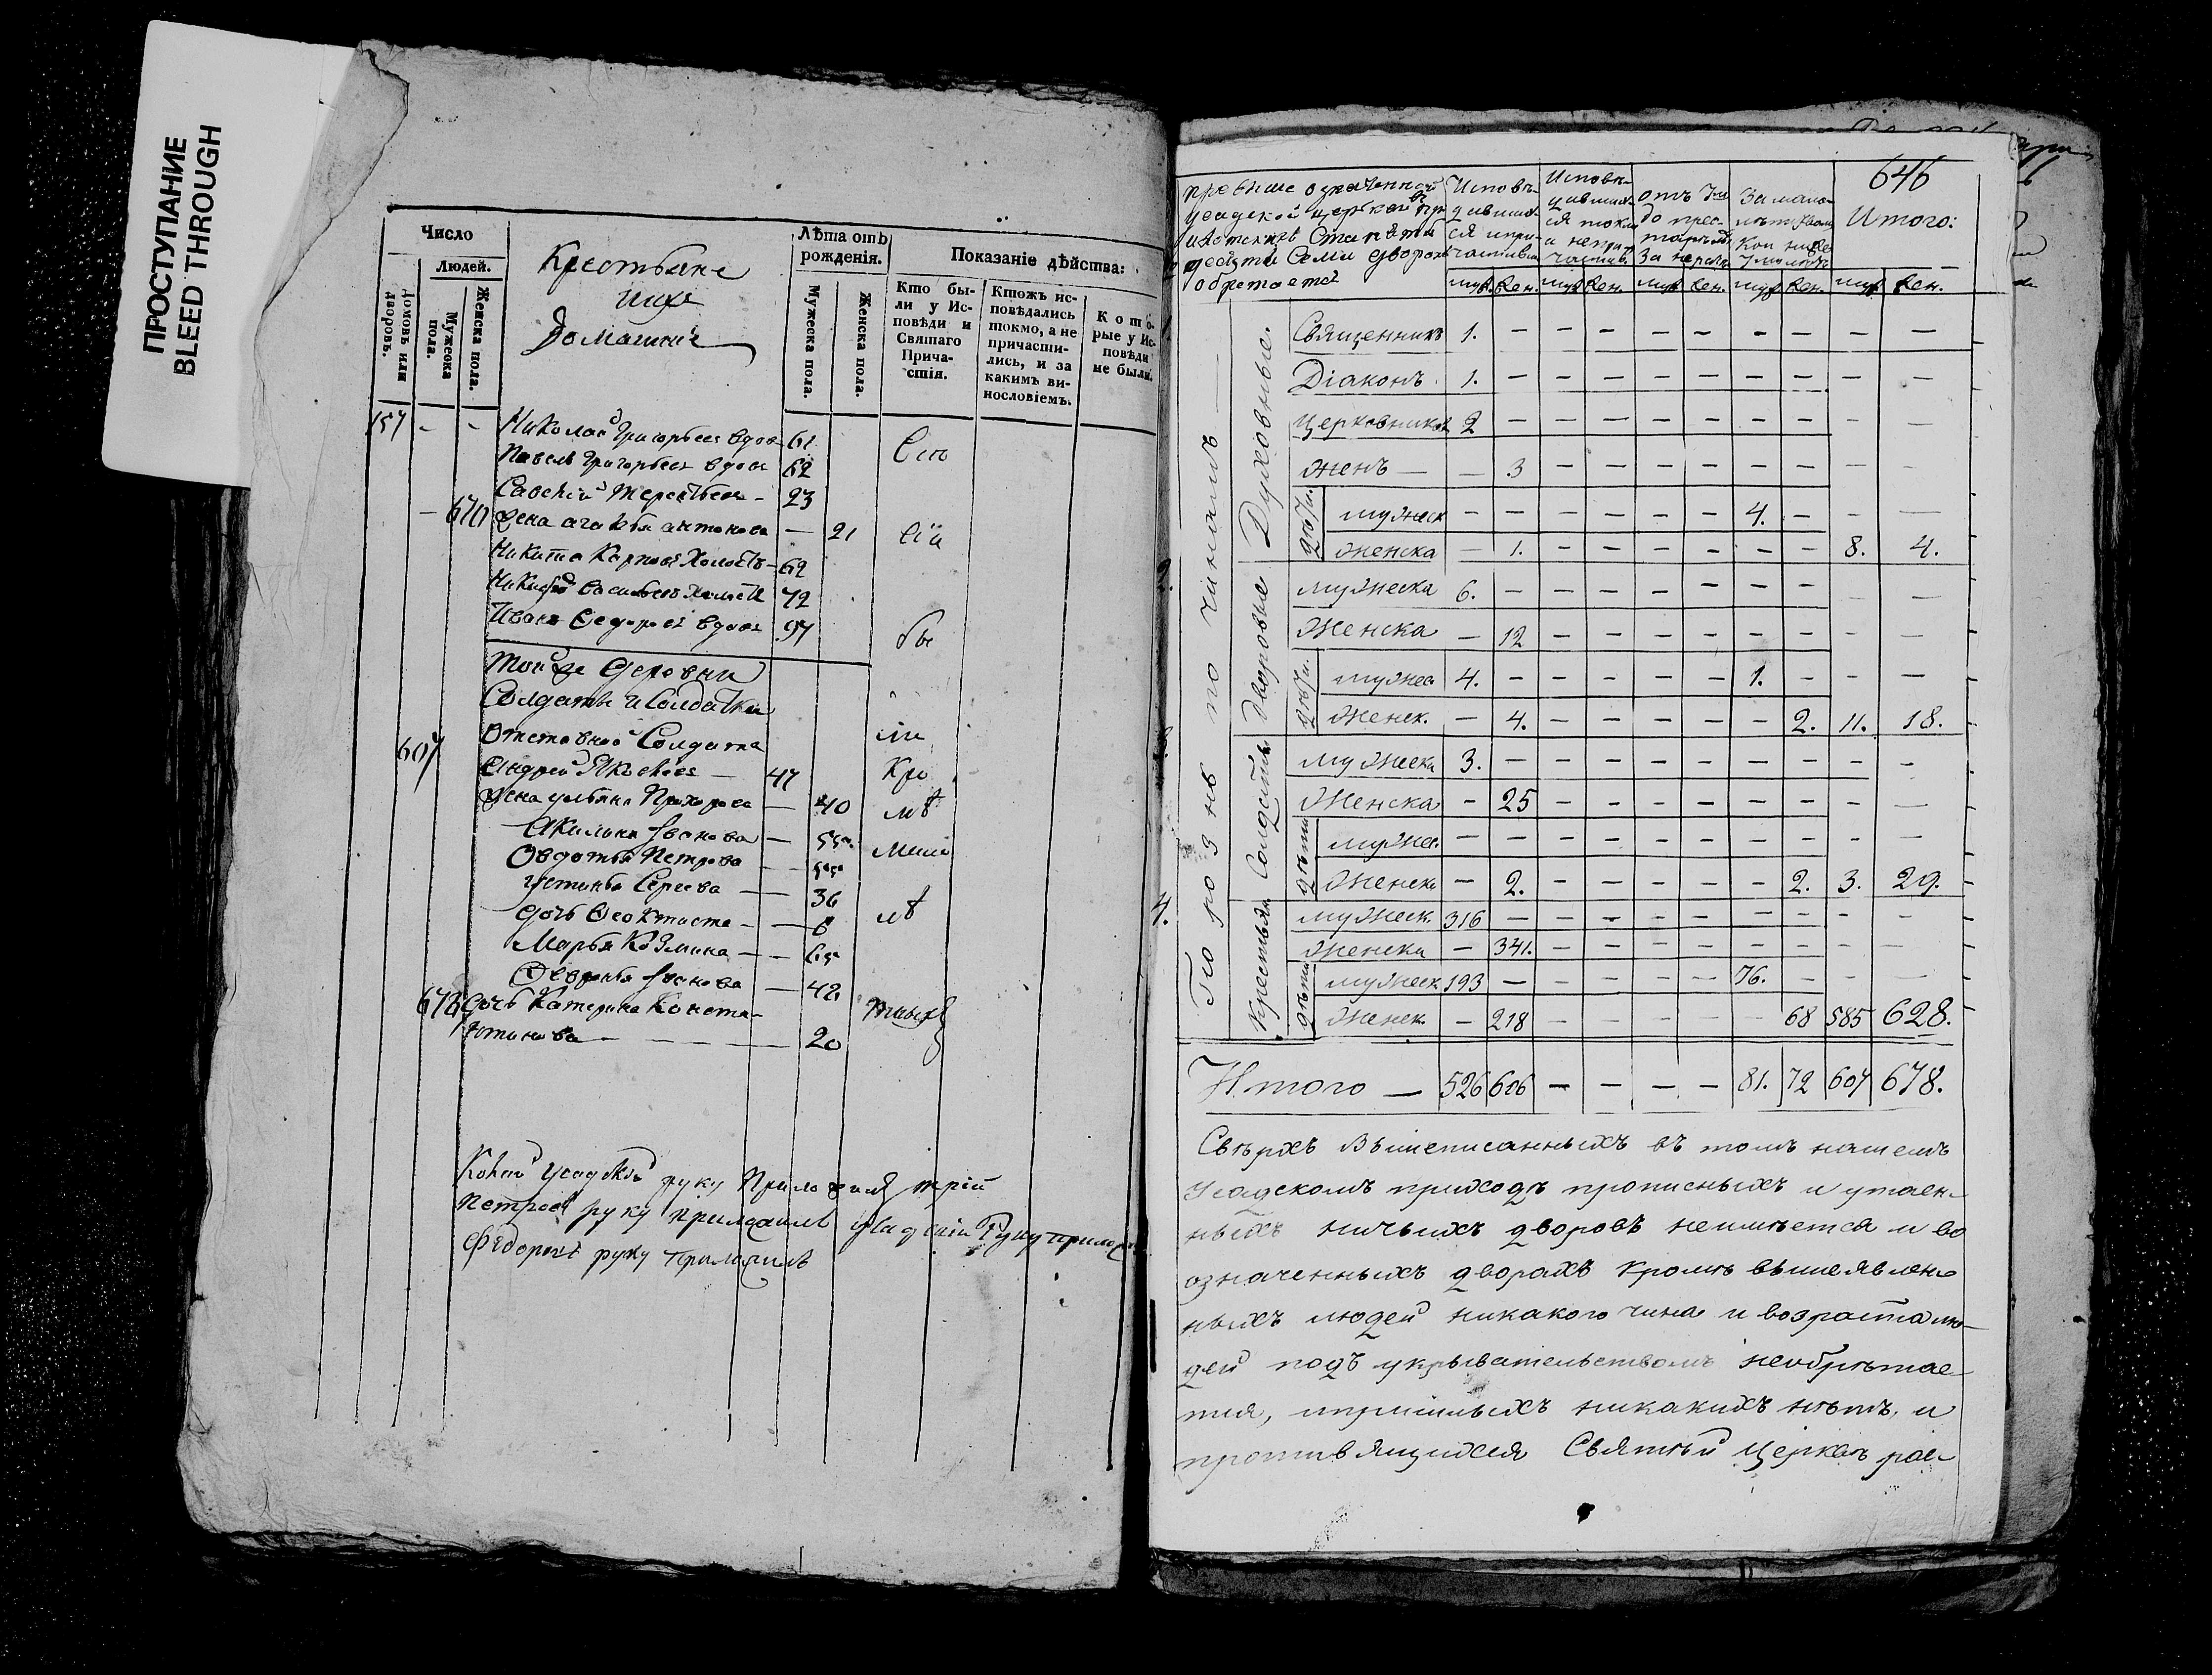 ПРОСТУПАНИЕ
BLEED THROUGH
Число
Людей.
Домовъ или дворовъ.
Мужеска пола.
Женска пола.
Крестьяне
ихъ
Домашніе
Лѣта отъ рожденія.
Мужеска пола.
Женска пола.
Показаніе дѣйства:
Кто бы-
ли у Ис-
повѣди и
Святаго
Прича-
стія.
Ктожъ ис-
повѣдались
токмо, а не
причасти-
лись, и за
какимъ ви-
нословіемъ.
Кото-
рые у Ис-
повѣди
не были.
157 - - Николай Григорьевъ вдовъ 61
Павелъ Григорьевъ вдовъ 62
Савелій Терентьевъ - 23
- 670 Жена Агафья Антонова — 21
Никита Карповъ Холостъ - 62
Никифоръ Васильевъ Холостъ 72
Иванъ Федоровъ вдовъ 97
Той же деровни
Солдаты и Солдатки
Отставной Солдатъ
607 Андрей Яковлевъ — 47
Жена Ульяна Прохорова — 40
Акилина Іванова — 55.
Овдотья Петрова — 55
Устинья Сергеева — 36
дочь Феоктиста — 8
Марья Козмина — 65
Овдотья Іванова — 42.
678 дочь Катерина Конста-
нтинова — 20
Сіи
всѣ
бы
ли
Кро
мѣ
мало
лѣ
тныхъ
руку приложилъ
Петровъ руку приложилъ руку прило
Федоровъ руку приложилъ
646
при выше означенной
Усадской церкви въ при
ходскихъ Ста пяти
десяти Семи дворохъ
обретается
Исповѣ-
давших-
ся и при-
частивш
Исповѣ-
давших-
ся токм
а не при
частив.
отъ 7ми
до прес-
тарѣлы
За нерад
За мало-
лѣтствомъ
кои ниже
7ми лѣтъ
Итого:
муж. жен. муж жен. муж жен. муж жен. муж жен.
По роднѣ по чинамъ
Духовные.
Священникъ 1. - - - - - - - - -
Діаконъ. 1. - - - - - - - - -
Церковников 2 - - - - - - - - -
Женъ — - 3 - - - - - - - -
дѣти.
мужеск - - - - - - 4. - - -
Женска - 1. - - - - - - 8. 4.
Дворовые
мужеска 6. - - - - - - - - -
Женска - 12 - - - - - - - -
дѣти.
мужес 4. - - - - - 1. - - -
Женск. - 4. - - - - - 2. 11. 18.
Солдаты
мужеска 3. - - - - - - - - -
Женска - 25 - - - - - - - -
дѣти
мужес. - - - - - - - - - -
Женска - 2. - - - - - 2. 3. 29.
Крестьян
мужеск. 316 - - - - - - - - -
Женска - 341. - - - - - - - -
дѣти
мужеск 193 - - - - - 76. - - -
Женск. - 218 - - - - - 68 585 628.
Итого — 526 606 - - - - 81. 72 607 678.
Сверхъ Вышеписанныхъ въ томъ нашемъ
Усадскомъ приходѣ прописныхъ и утаен-
ныхъ ничьихъ дворовъ неимѣется и во
означенныхъ дворахъ кромѣ вышеявлен-
ныхъ людей никакого чина и возраста лю-
дей подъ укрывательствомъ необрѣтае-
тся, ипришлыхъ никакихъ нѣтъ, и
противящихся Святѣй Церкви рас-